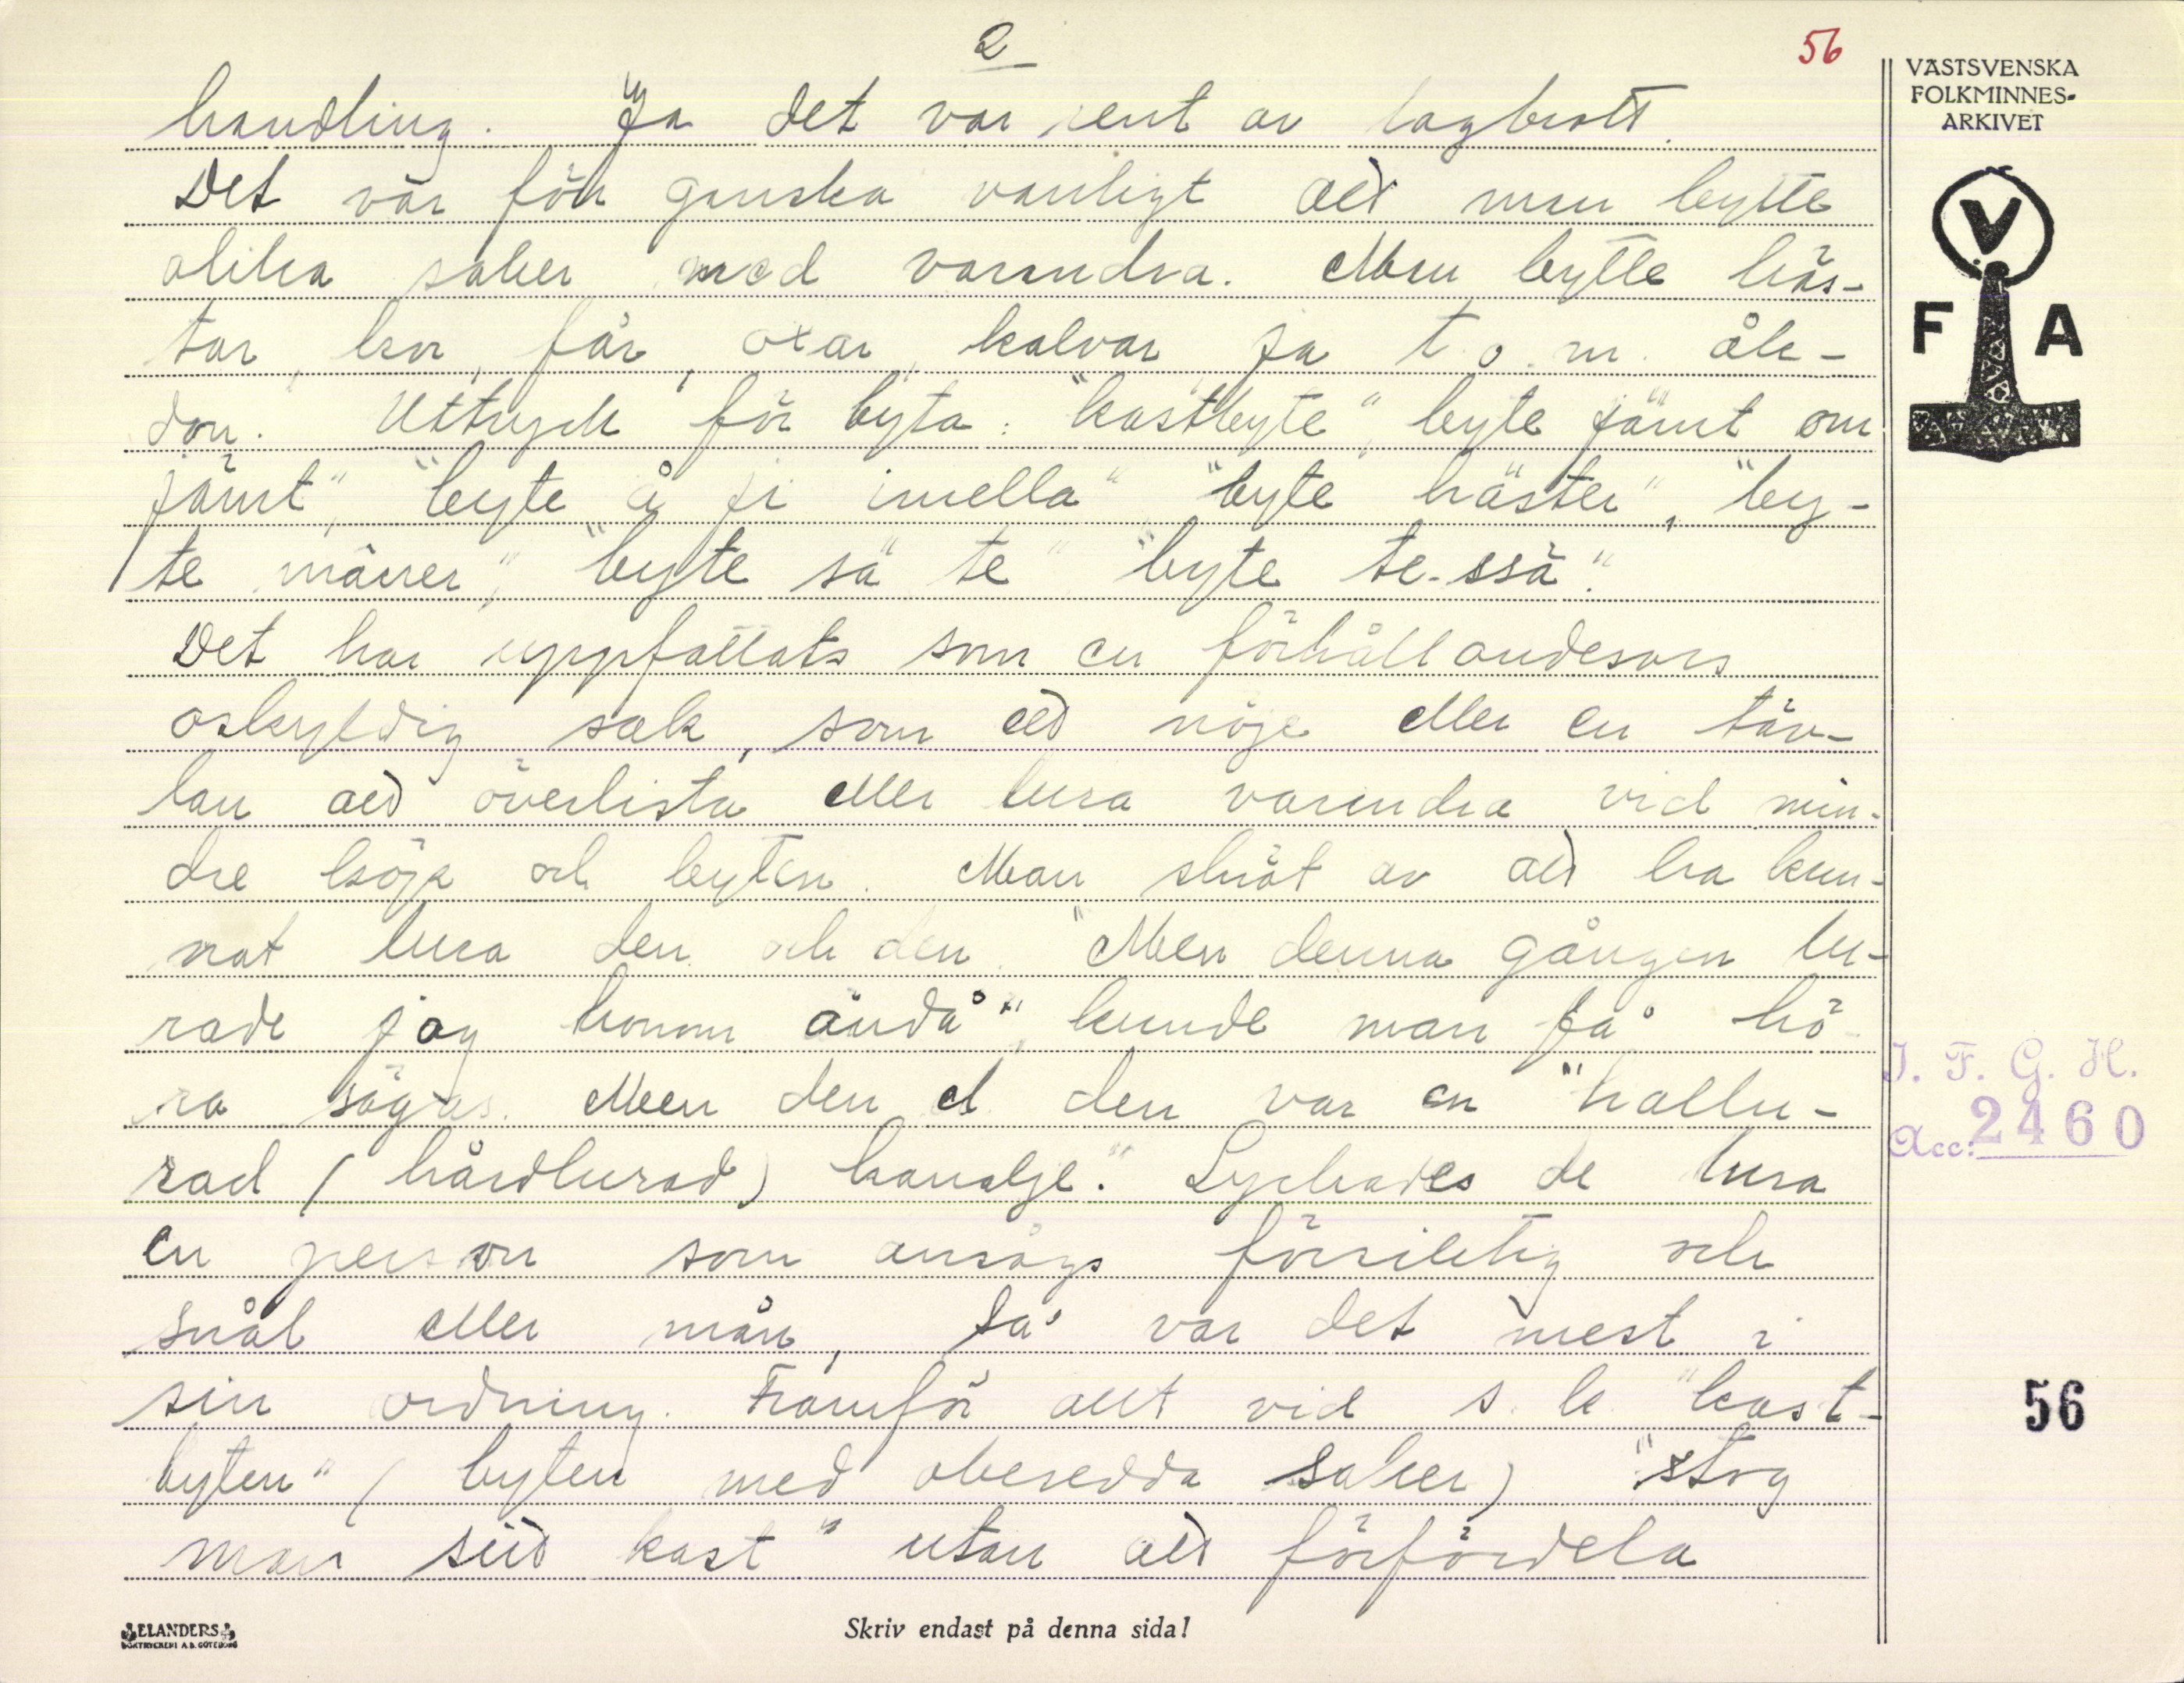 2
56
VÄSTSVENSKA
FOLKMINNES-
ARKIVET
V
F A
handling. Ja det var rent av lagbrott.
Det var förr ganska vanligt att man bytte
olika saker med varandra. Man bytte häs-
tar, kor, får, oxar, kalvar ja t.o.m. åk-
don. Uttryck för byta: "kastbyte", byte jämt om
jämt", "byte å ji imella" "byte häster", "by-
te märrer", "byte sä te" "byte te-ssä".
Det har uppfattats som en förhållandesvis
oskyldig sak, som ett nöje eller en täv-
lan att överlista eller lura varandra vid min-
dre köp och byten. Man skröt av att ha kun-
nat lura den och den. "Men denna gången lu-
rade jag honom ändå", kunde man få hö
ra sägas. Men den el den var en "hallu-
rad (hårdlurad) kanalje". Lyckades de lura
en person som ansågs försiktig och
snål eller mån, då var det mest i
sin ordning. Framför allt vid s.k. "kast-
byten" (byten med obesedda saker) "stog
man sitt kast" utan att förfördela
I. F. G. H.
Acc: 2460
56
ELANDERS
BOKTRYCKERI A.B. GÖTEBORG
Skriv endast på denna sida!